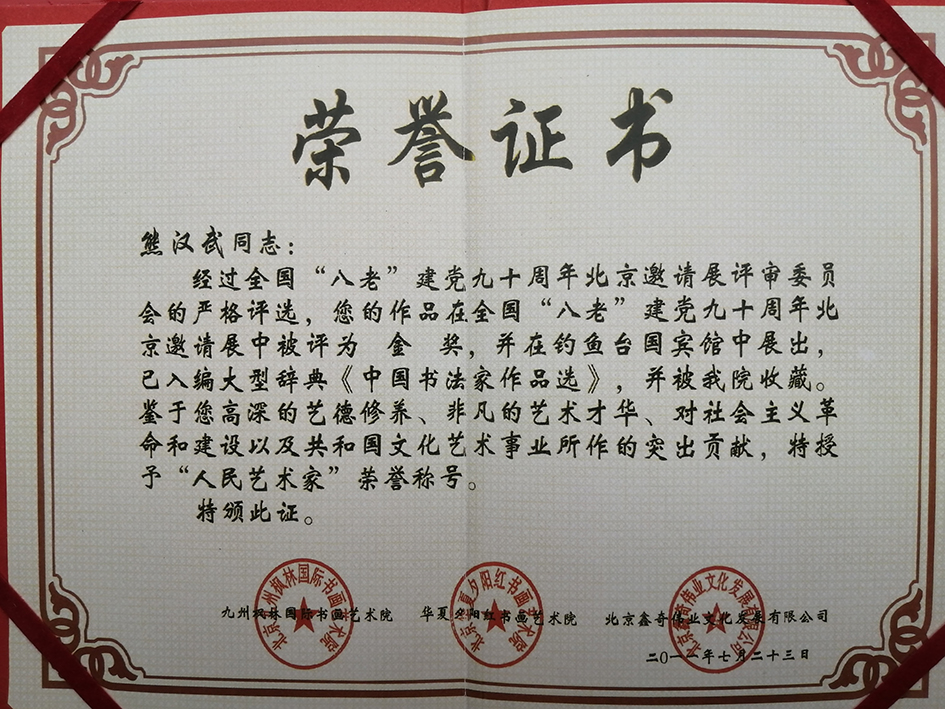 荣誉证书
熊汉武同志：
经过全国“八老”建党九十周年北京邀请展评审委员
会的严格评选，您的作品在全国“八老”建党九十周年北
京邀请展中被评为 金 奖，并在钓鱼台国宾馆中展出，
已入编大型辞典《中国书法家作品选》，并被我院收藏。
鉴于您高深的艺德修养、非凡的艺术才华、对社会主义革
命和建设以及共和国文化艺术事业所作的突出贡献，特授
予“人民艺术家”荣誉称号。
特颁此证。
北京九州枫林国际书画艺术院
北京华夏夕阳红书画艺术院
北京鑫奇伟业文化发展有限公司
九州枫林国际书画艺术院 华夏夕阳红书画艺术院 北京鑫奇伟业文化发展有限公司
二0一一年七月二十三日